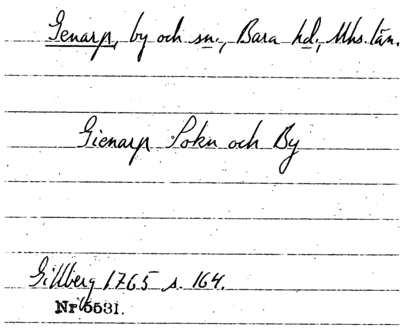 Genarp, by och sn., Bara hd., Mhs. län.
Gienarp Sokn och By
Gillberg 1765 s. 164.
Nr 5531.